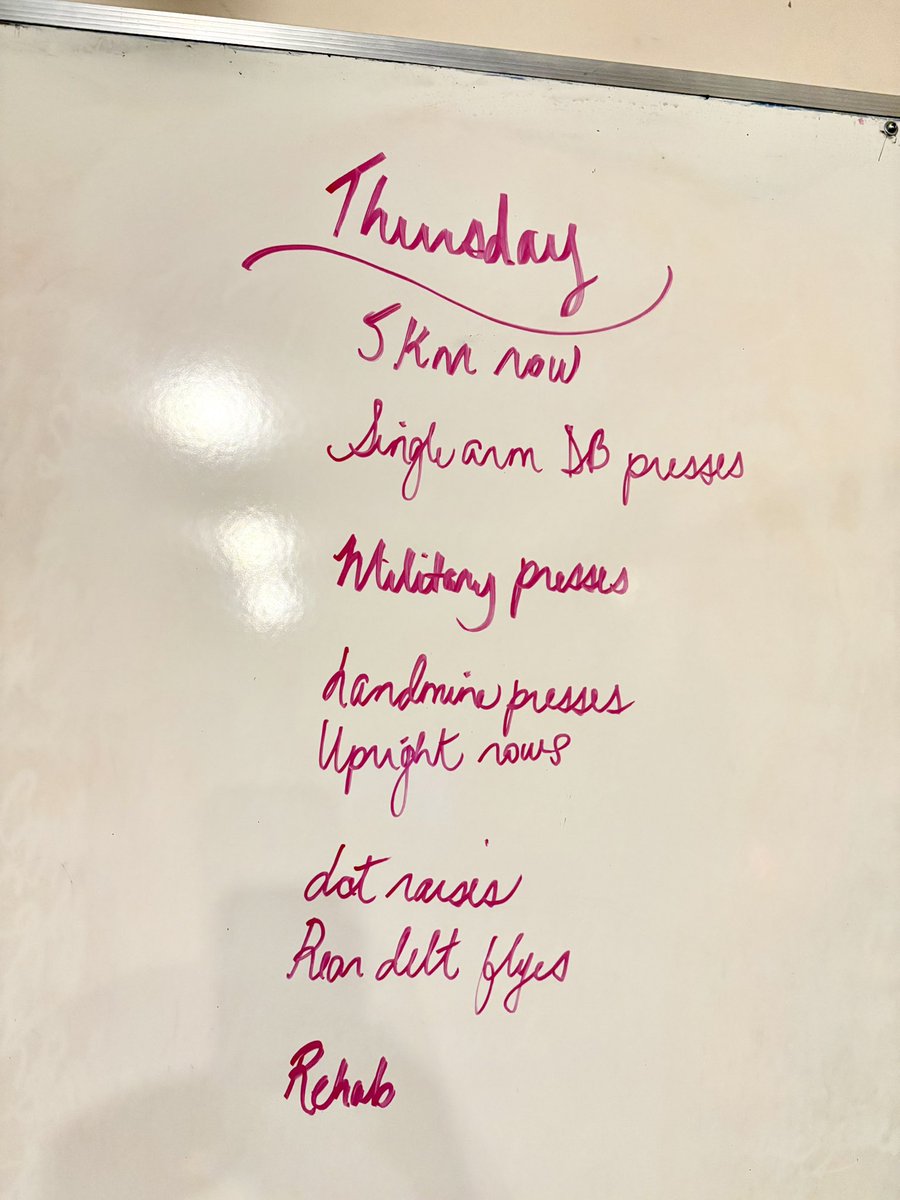 Thursday
5Km row
Single arm DB presses
Military presses
Landmine presses
Upright rows
Lat raises
Rear delt flyes
Rehab